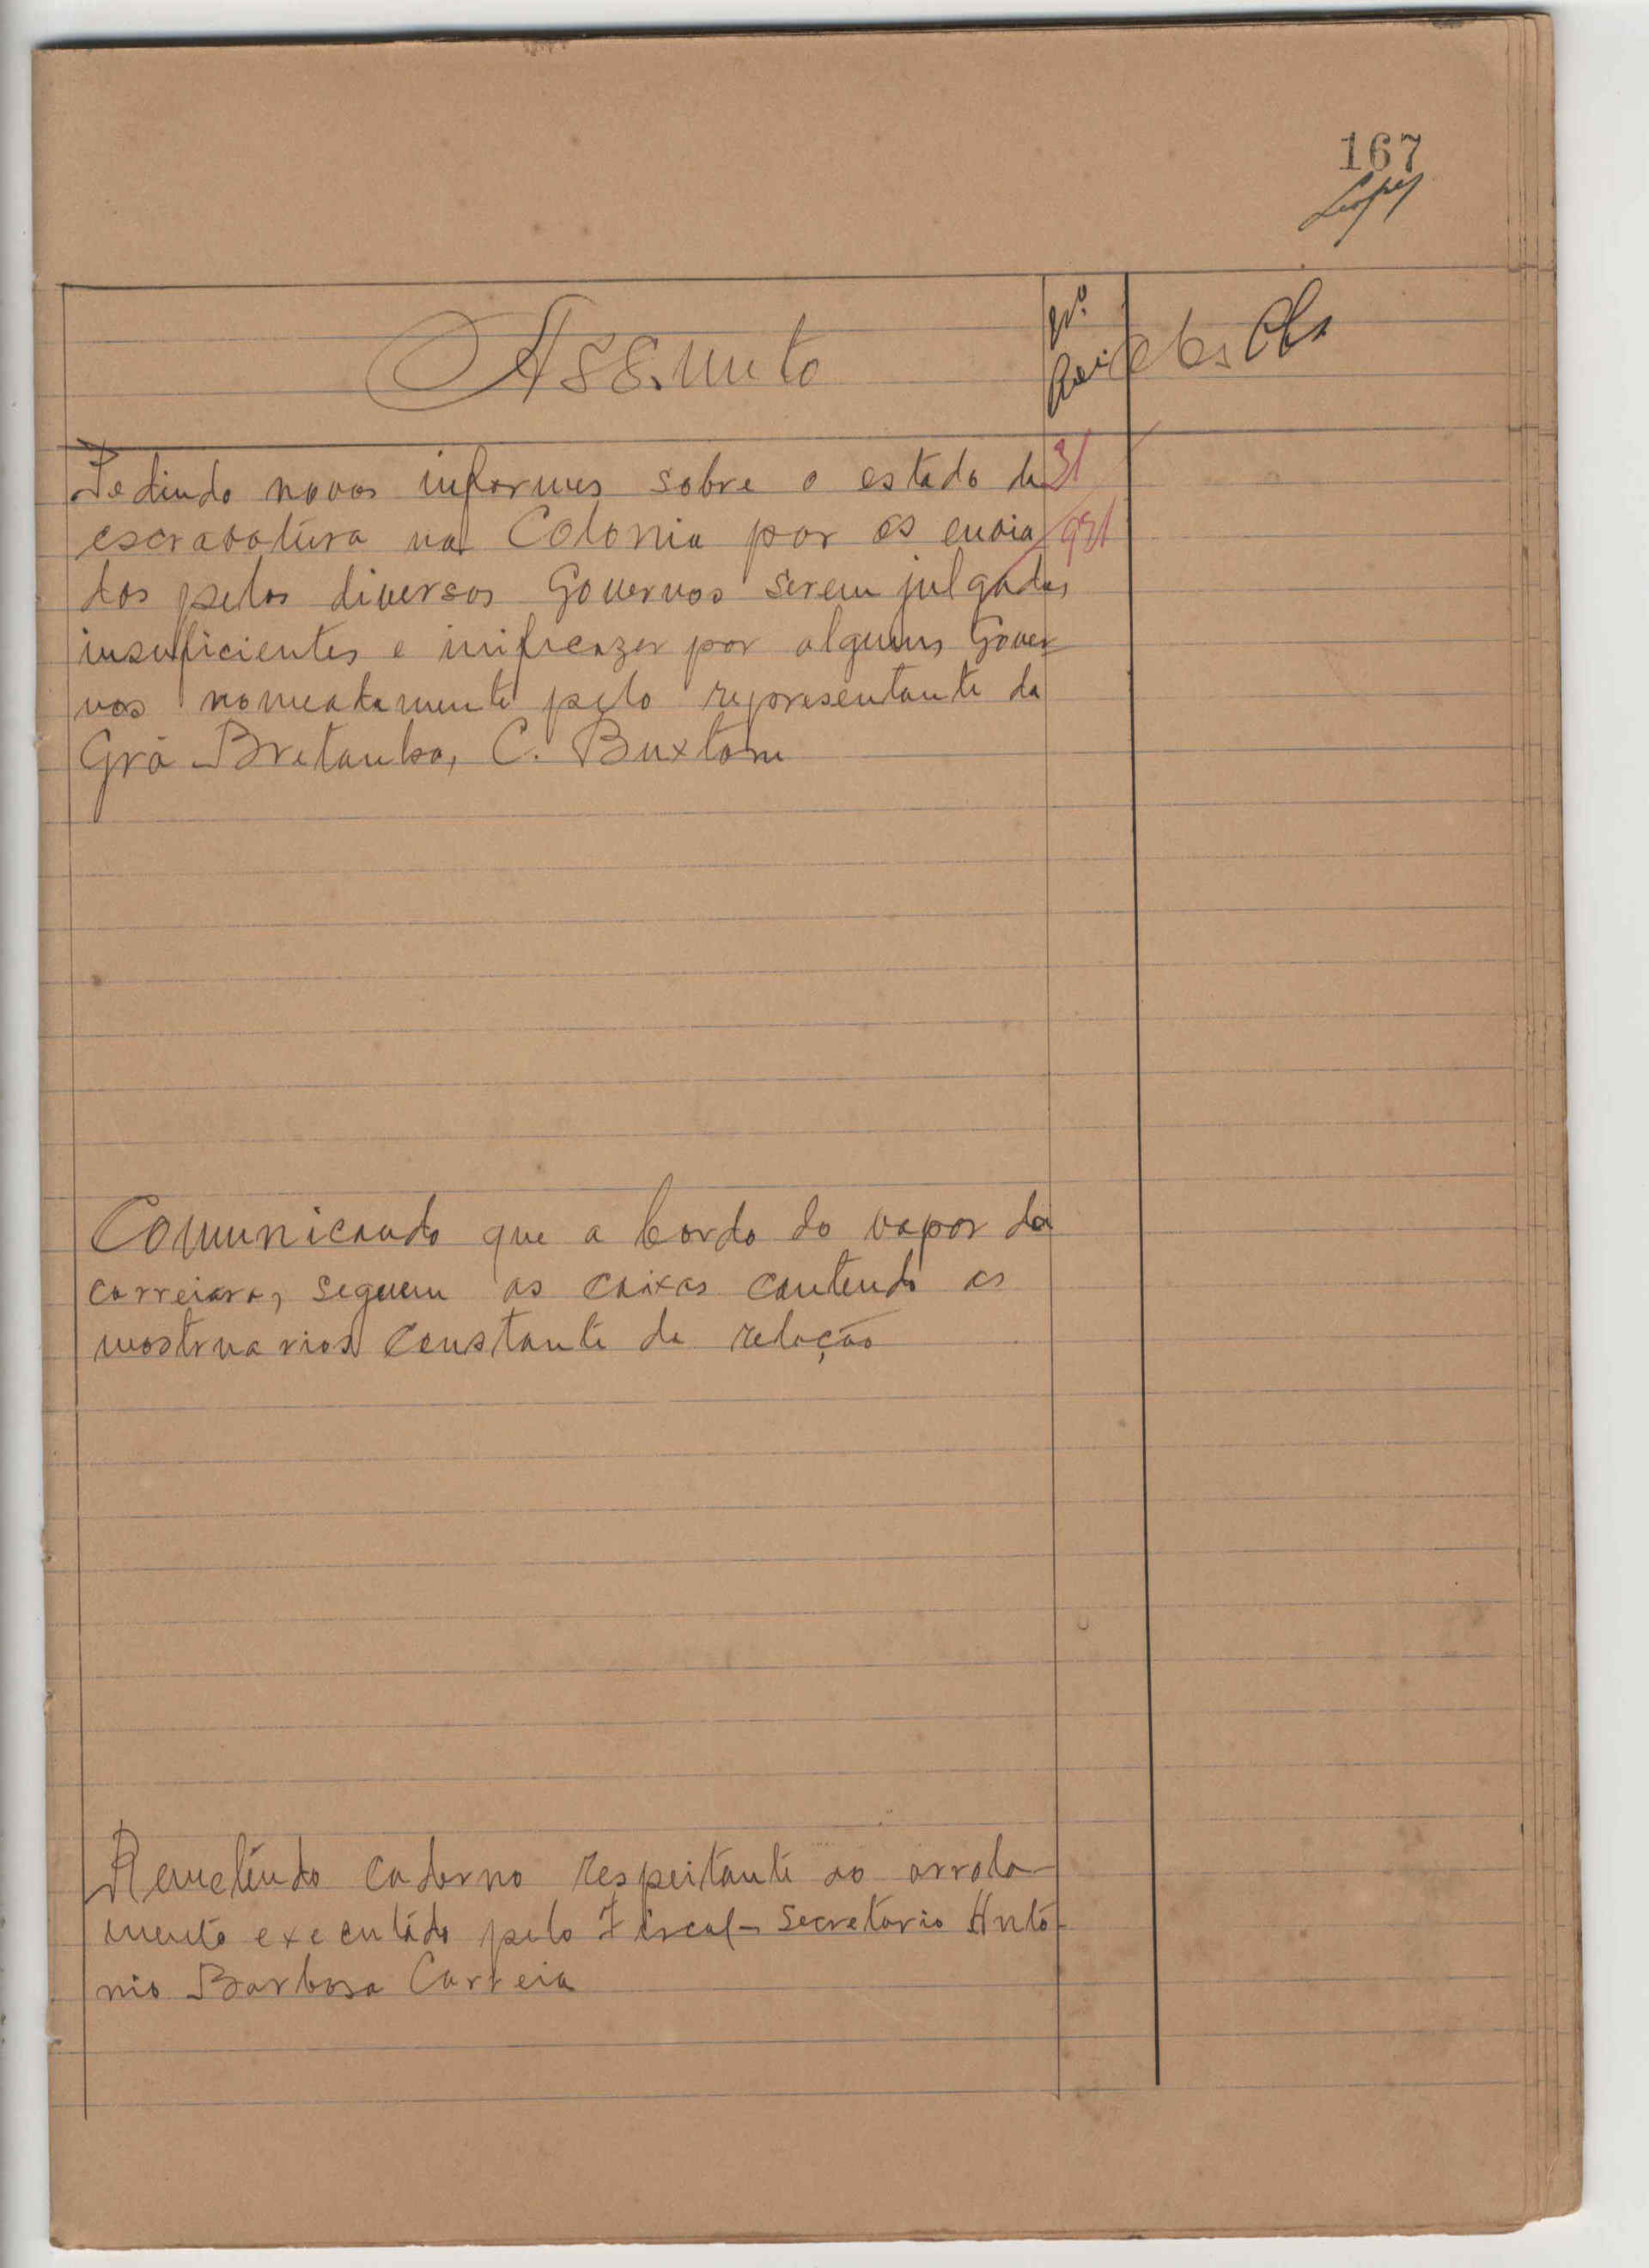 167
Lopes
Assunto
Nº
Obs
Pedindo novos informes sobre o estado da 31
escravatura na Colonia por os envia 931
dos pelos diversos Governos serem julgados
insuficientes e inificazes por alguns Gover
nos nomeadamente pelo representante da
Grã Bretanha, C. Buxtom
Comunicando que a bordo do vapor da
carreiara, seguem as caixas contendo as
mostruarios constante da relação
Remetendo caderno respeitante ao arrola-
mento executádo pelo Fiscal-Secretario Antó-
nio Barbosa Carreia